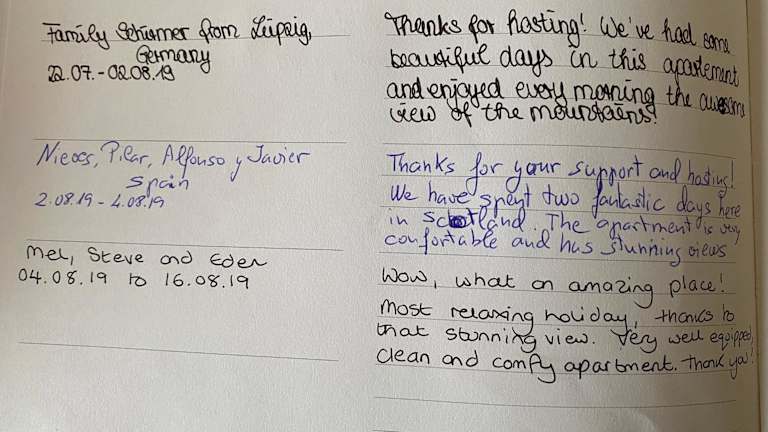 Family Schirmer from Leipzig,
Germany
22.07.-02.08.19
Thanks for hosting! We've had some
beautiful days in this apartement
and enjoyed every morning the awesome
view of the mountains!
Nieves, Pilar, Alfonso y Javier
Spain
2.08.19 - 4.08.19
Thanks for your support and hosting!
We have spent two fantastic days here
in scotland. The apartment is very
confortable and has stunning views
Mel, Steve and Eden
04.08.19 to 16.08.19
Wow, what an amazing place!
Most relaxing holiday, thanks to
that stunning view. Very well equipped,
clean and comfy apartment. Thank you!